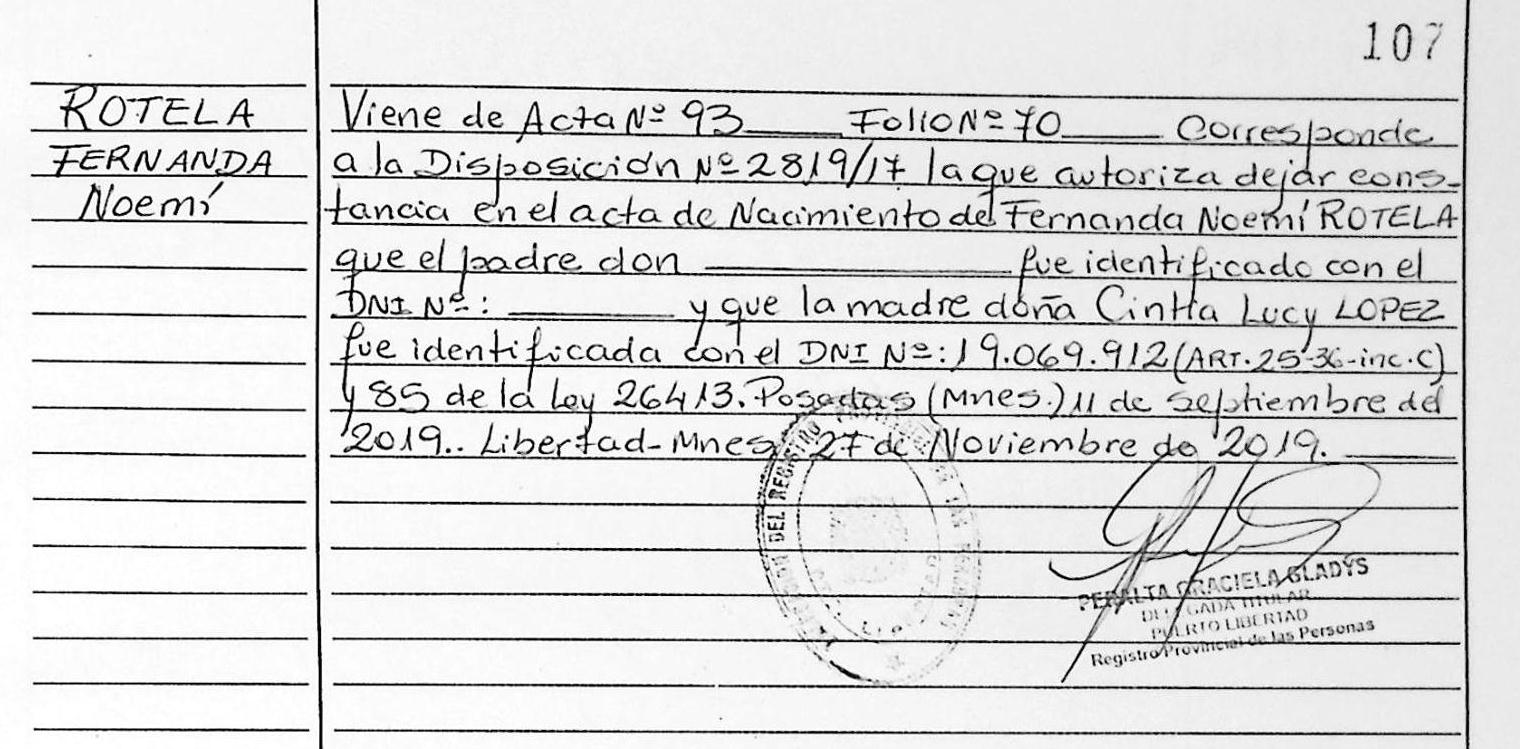 107
ROTELA
FERNANDA
Noemí
Viene de Acta Nº 93 Folio Nº 70 Corresponde
a la Disposición Nº 2819/17 la que autoriza dejar cons-
tancia en el acta de Nacimiento de Fernanda Noemí ROTELA
que el padre don fue identificado con el
DNI Nº: y que la madre doña Cintia Lucy LOPEZ
fue identificada con el DNI Nº: 19.069.912 (ART. 25-36-inc. C)
y 85 de la Ley 26413. Posadas (Mnes.) 11 de septiembre del
2019.. Libertad-Mnes. 27 de Noviembre de 2019.
DEL REGISTRO
PERALTA GRACIELA GLADYS
DELEGADA TITULAR
PUERTO LIBERTAD
Registro Provincial de las Personas